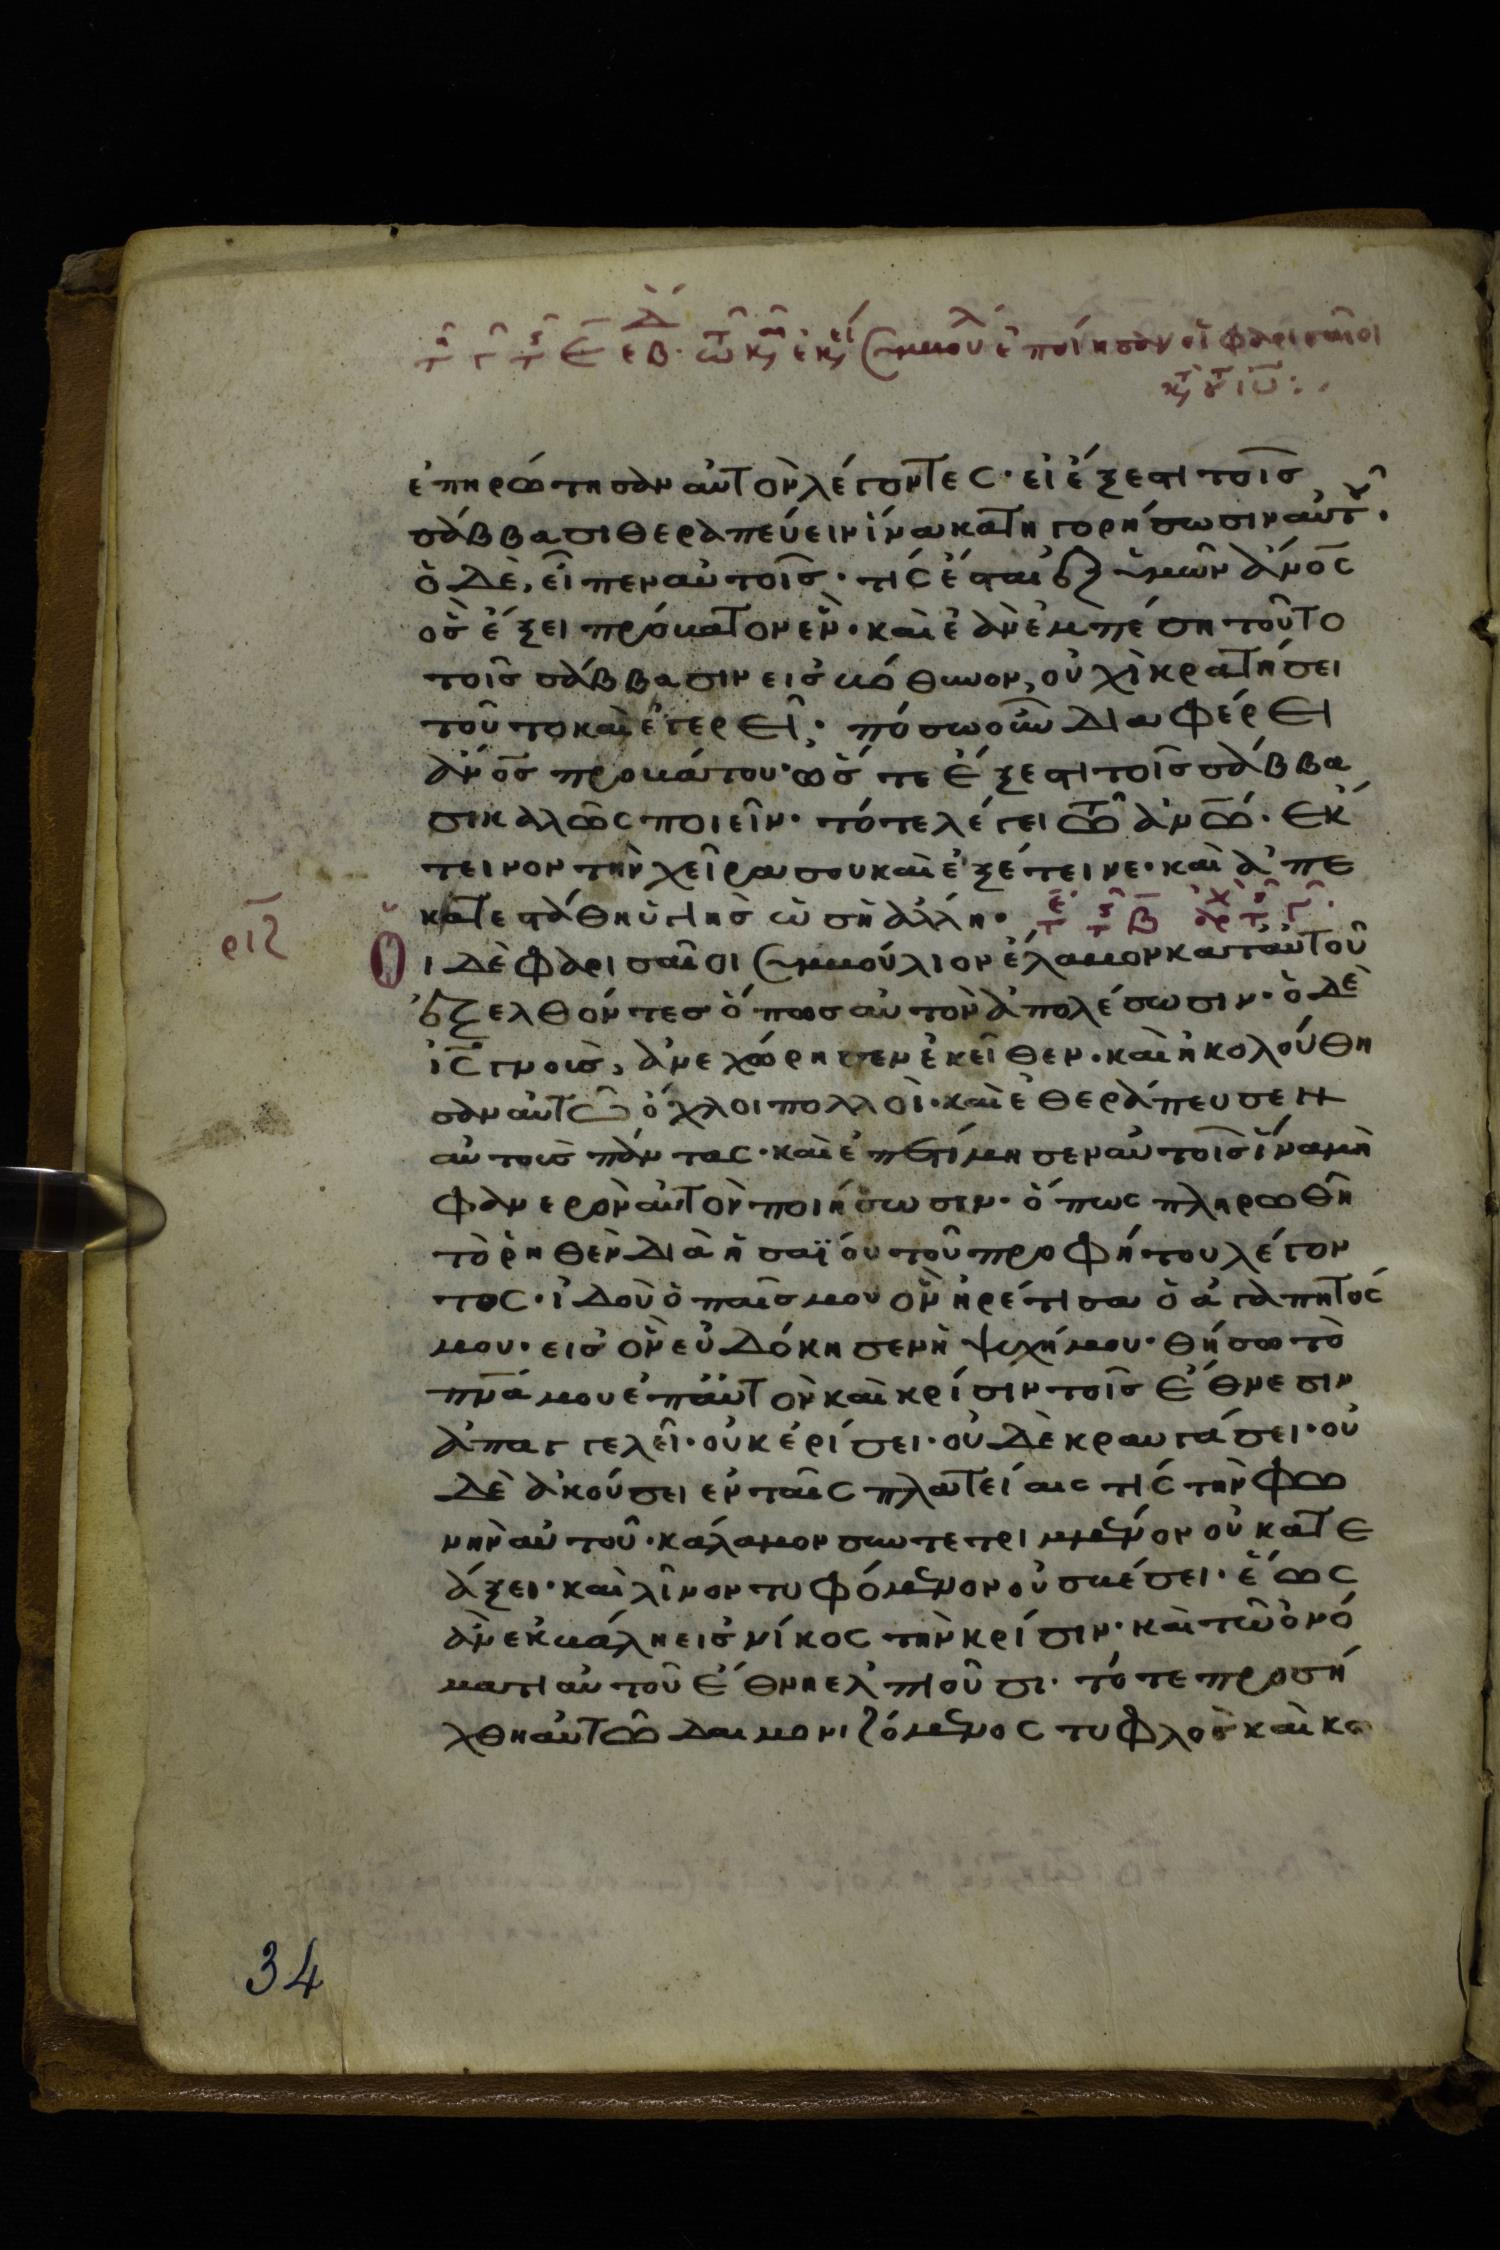 ἐπηρώτησαν αὐτὸν λέγοντες· εἰ ἔξεστι τοῖς
σάββασι θεραπεύειν ἵνα κατηγορήσωσιν αὐτοῦ·
ὁ δὲ, εἶπεν αὐτοῖς· τίς ἔσται ἐξ ὑμῶν ἄνος
ὃς ἕξει πρόβατον ἓν· καὶ ἐὰν ἐμπέση τοῦτο
τοῖς σάββασιν εἰς βόθυνον, οὐχὶ κρατήσει
τοῦτο καὶ ἐγερεῖ· πόσω οὖν διαφέρει
ἄνος προβάτου· ὥστε ἔξεστι τοῖς σάββα
σι καλῶς ποιεῖν· τότε λέγει τῶ ἀνω· ἔκ
τεινον τὴν χεῖρα σου καὶ ἐξέτεινε· καὶ ἀπε
κατεστάθη ὑγιὴς ὡσὴ ἄλλη·
ριϛ
Οἱ δὲ φαρισαῖοι συμβούλιον ἔλαβον κατ αὐτοῦ
ἐξελθόντες ὅπως αὐτὸν ἀπολέσωσιν· ὁ δὲ
ις γνοὺς, ἀνεχώρησεν ἐκεῖθεν· καὶ ἠκολούθη
σαν αὐτῶ ὄχλοι πολλοὶ· καὶ ἐθεράπευσεν
αὐτοὺς πάντας· καὶ ἐπετίμησεν αὐτοῖς ἵνα μὴ
φανερὸν αὐτὸν ποιήσωσιν· ὅπως πληρωθῆ
τὸ ῥηθὲν διὰ ἡσαΐου τοῦ προφήτου λέγον
τος· ἰδοὺ ὁ παῖς μου ὃν ἡρέτισα ὁ ἀγαπητός
μου· εἰς ὃν εὐδόκησεν ἡ ψυχή μου· θήσω τὸ
πνα μου ἐπ αὐτὸν καὶ κρίσιν τοῖς ἔθνεσιν
ἀπαγγελεῖ· οὐκ ἐρίσει· οὐδὲ κραυγάσει· οὐ
δὲ ἀκούσει ἐν ταῖς πλατείαις τίς τὴν φω
νὴν αὐτοῦ· κάλαμον συντετριμμένον οὐ κατε
άξει· καὶ λίνον τυφόμενον οὐ σβέσει· ἕως
ἂν ἐκβάλη εἰς νίκος τὴν κρίσιν· καὶ τῶ ὀνό
ματι αὐτοῦ ἔθνη ἐλπιοῦσι· τότε προσή
χθη αὐτῶ δαιμονιζόμενος τυφλὸς καὶ κω
34